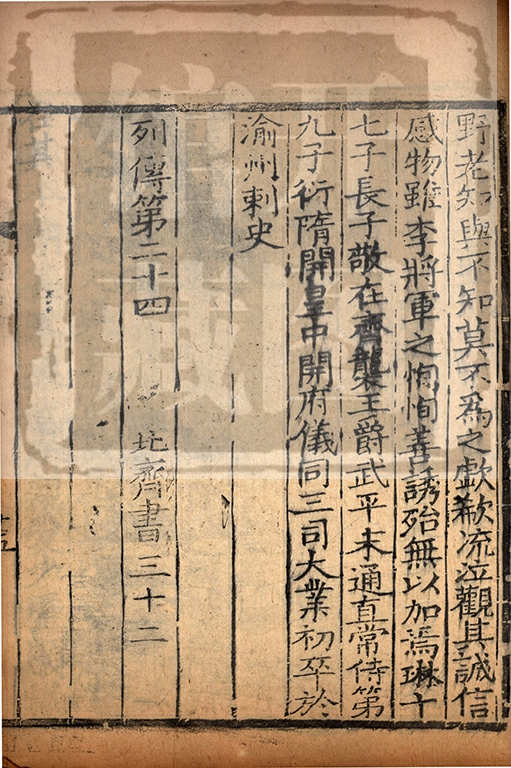 野老知與不知莫不爲之歔欷流泣觀其誠信
感物雖李將軍之恂恂善誘殆無以加焉琳十
七子長子敬在齊襲王爵武平末通直常侍第
九子衍隋開皇中開府儀同三司大業初卒於
渝州刺史
列傳第二十四 北齊書三十二